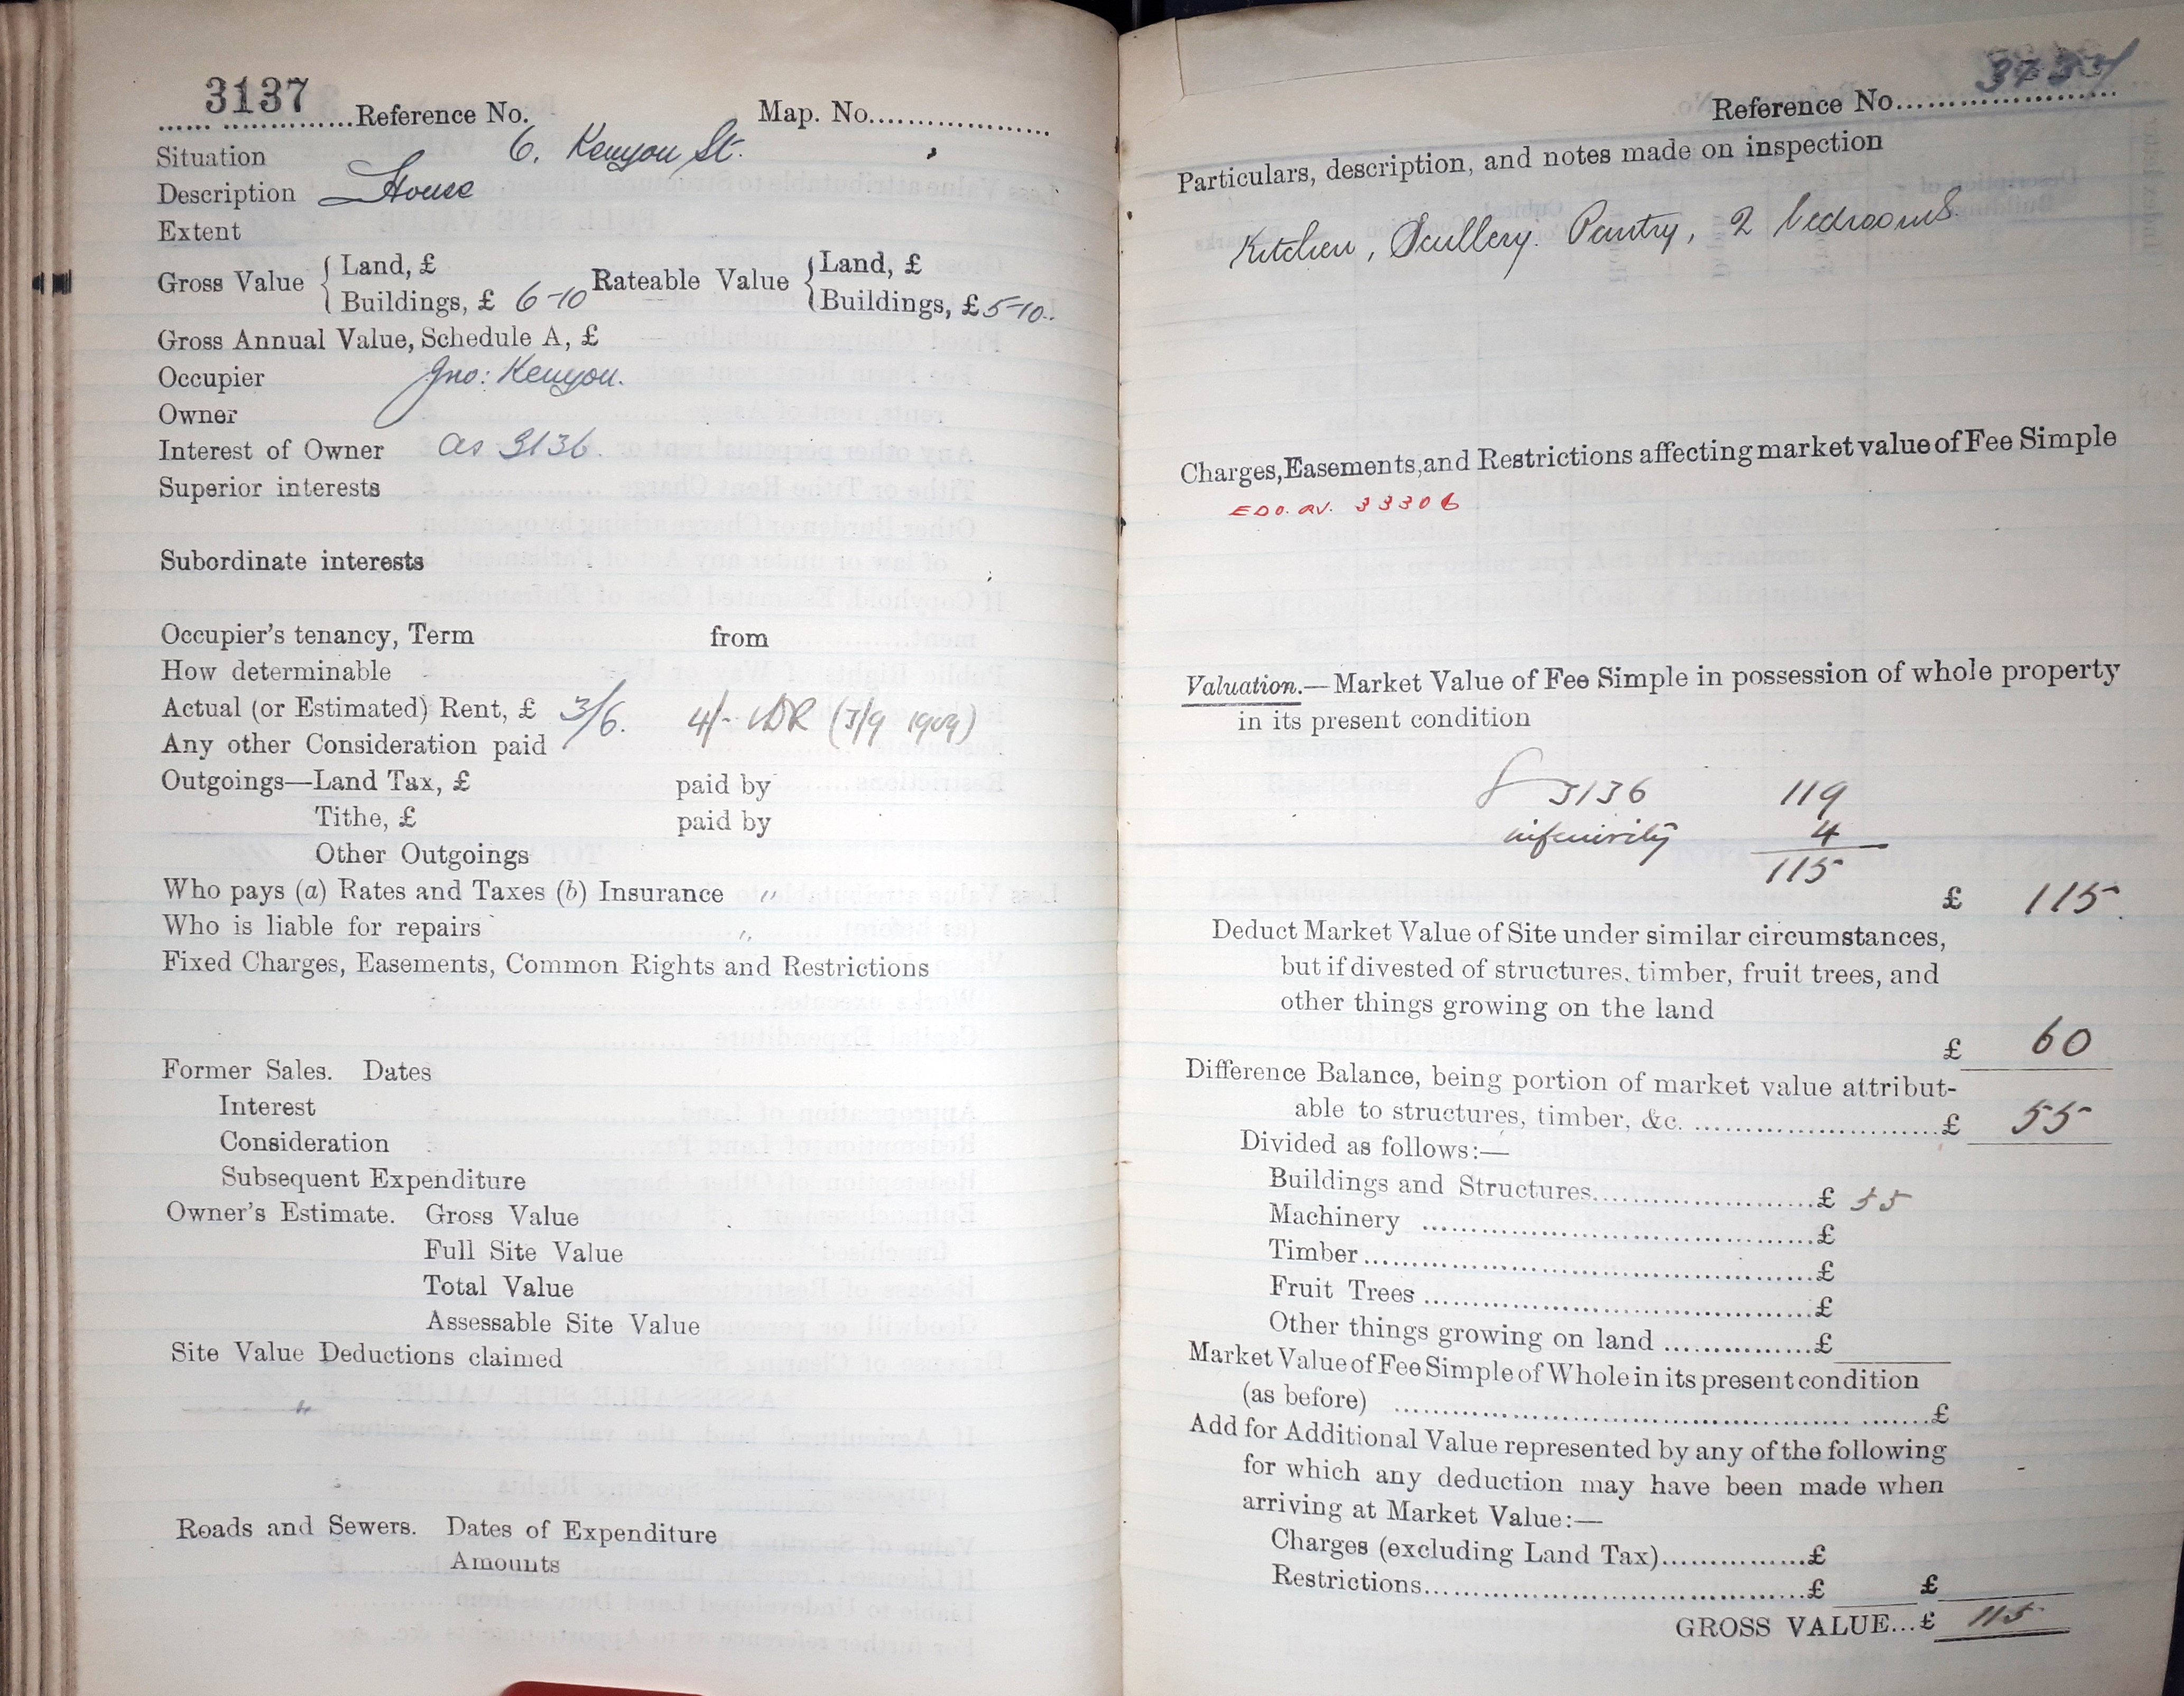 3137
Reference No. Map. No.
Situation 6, Kenyon St.
Description House
Extent
Gross Value { Land, £ Rateable Value { Land, £
Buildings, £ 6-10 Buildings, £ 5-10
Gross Annual Value, Schedule A, £
Occupier Jno: Kenyon.
Owner
Interest of Owner as 3136
Superior interests
Subordinate interests
Occupier's tenancy, Term from
How determinable
Actual (or Estimated) Rent, £ 3/6. 4/- LDR (3/9 1909)
Any other Consideration paid
Outgoings—Land Tax, £ paid by
Tithe, £ paid by
Other Outgoings
Who pays (a) Rates and Taxes (b) Insurance "
Who is liable for repairs "
Fixed Charges, Easements, Common Rights and Restrictions
Former Sales. Dates
Interest
Consideration
Subsequent Expenditure
Owner's Estimate. Gross Value
Full Site Value
Total Value
Assessable Site Value
Site Value Deductions claimed
"
Roads and Sewers. Dates of Expenditure
Amounts
Reference No.
Particulars, description, and notes made on inspection
Kitchen, Scullery. Pantry, 2 bedrooms
Charges, Easements, and Restrictions affecting market value of Fee Simple
EDO. AV. 33306
Valuation.—Market Value of Fee Simple in possession of whole property
in its present condition
3136 119
inferiority 4
115
£ 115
Deduct Market Value of Site under similar circumstances,
but if divested of structures, timber, fruit trees, and
other things growing on the land
£ 60
Difference Balance, being portion of market value attribut-
able to structures, timber, &c. £ 55
Divided as follows:—
Buildings and Structures £ 55
Machinery £
Timber £
Fruit Trees £
Other things growing on land £
Market Value of Fee Simple of Whole in its present condition
(as before) £
Add for Additional Value represented by any of the following
for which any deduction may have been made when
arriving at Market Value:—
Charges (excluding Land Tax) £
Restrictions £ £
GROSS VALUE...£ 115